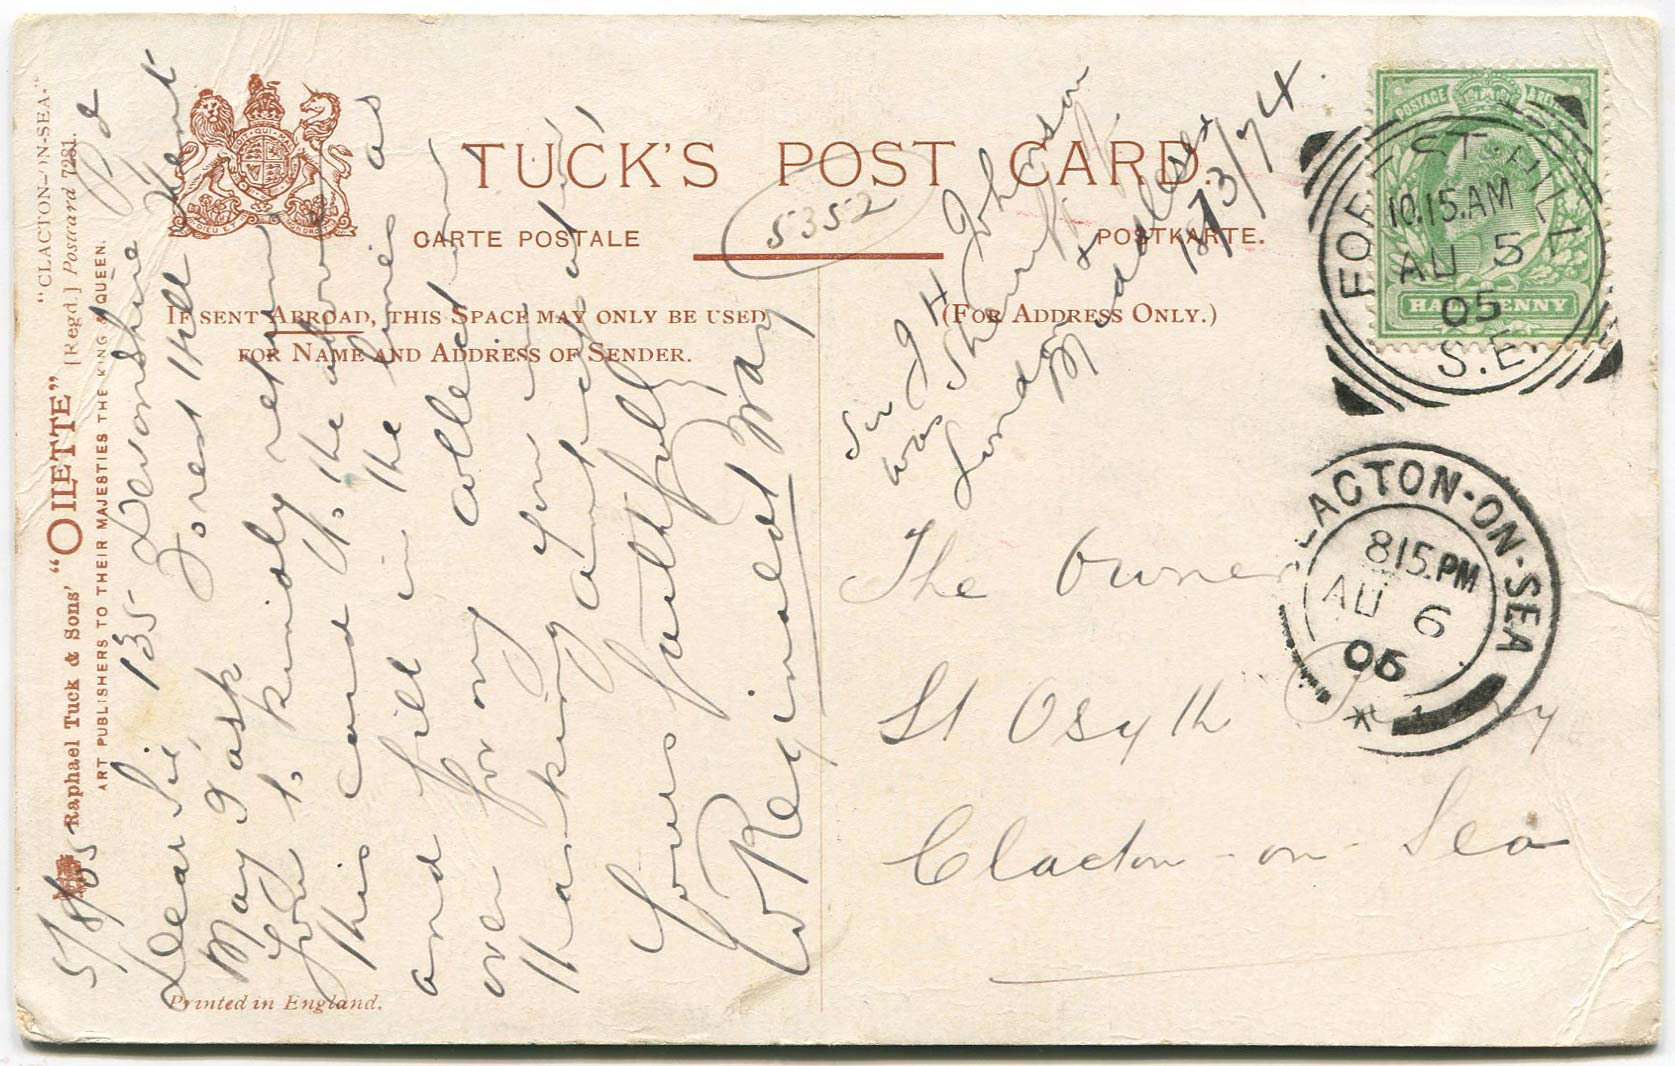 "CLACTON-ON-SEA."
Raphael Tuck & Sons' "OILETTE" [Regd.] Postcard 7281.
ART PUBLISHERS TO THEIR MAJESTIES THE KING & QUEEN.
TUCK'S POST CARD.
CARTE POSTALE
POSTKARTE.
5352
IF SENT ABROAD, THIS SPACE MAY ONLY BE USED
FOR NAME AND ADDRESS OF SENDER.
(FOR ADDRESS ONLY.)
HALFPENNY
FOREST HILL
10.15.AM
AU 5
05
S.E.
CLACTON-ON-SEA
815.PM
AU 6
05
5/8/05
135 Devonshire Rd
Forest Hill Kent
Dear Sir,
May I ask
you to kindly return
this card to the above as
and fill in the lines
over for my collection
thanking you in
anticipation
Yours faithfully
W Reginald Way
Sir J H Johnson
was Sheriff
London &
Middlesex
1873/74.
The Owner
St Osyth Priory
Clacton-on-Sea
Printed in England.